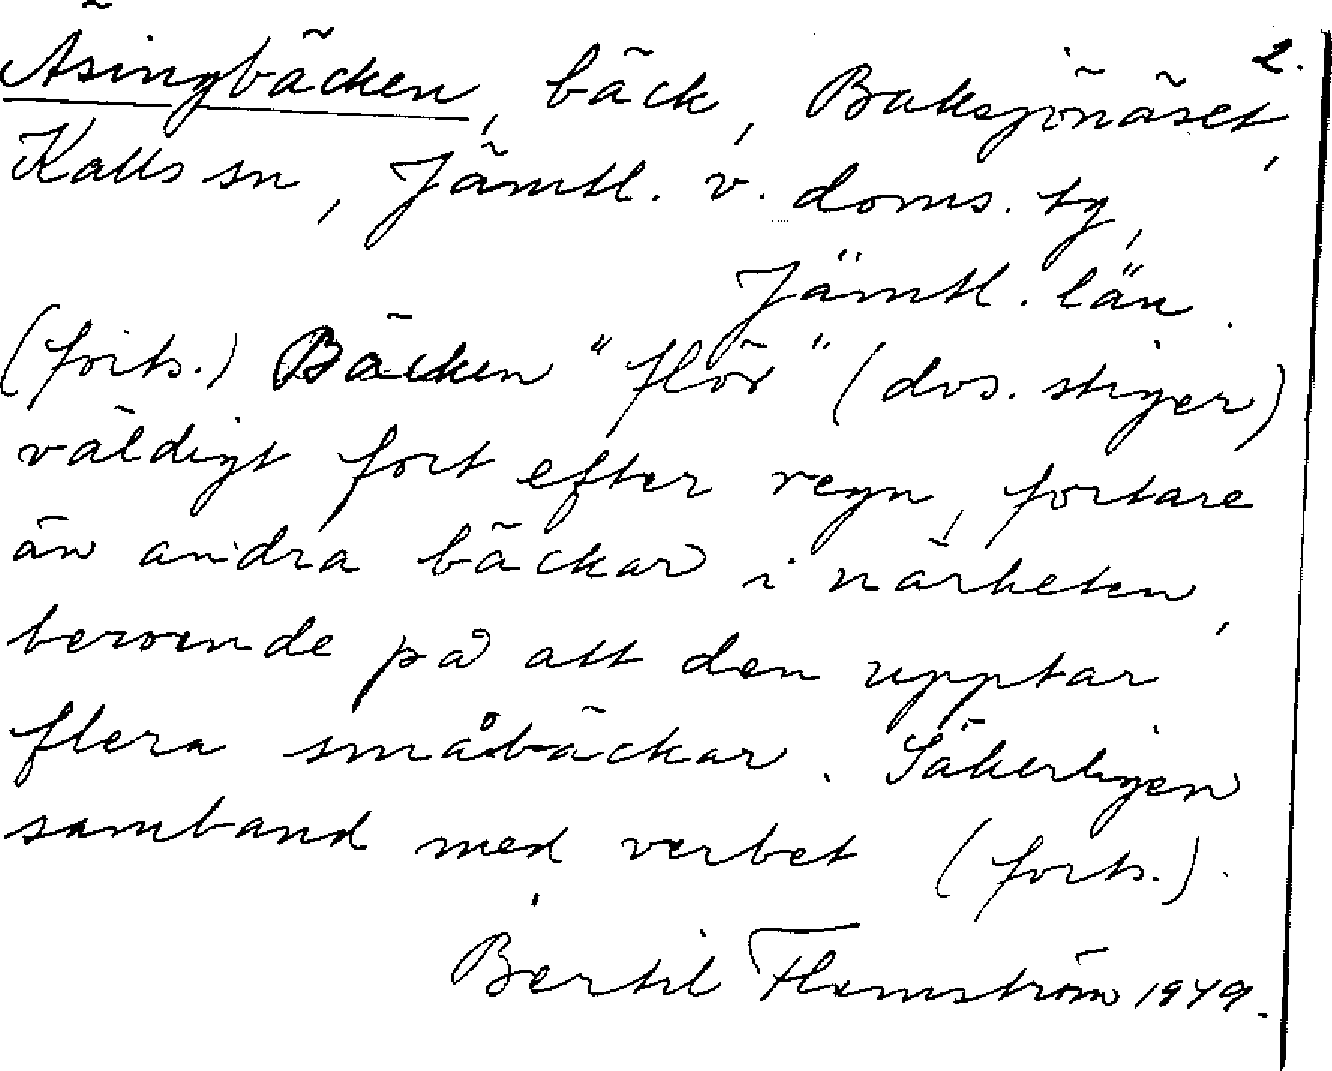 2.
Äsingbäcken, bäck, Baksjönäset,
Kalls sn, Jämtl. v. doms. tg,
Jämtl. län.
(forts.) Bäcken "flör" (dvs. stiger)
väldigt fort efter regn, fortare
än andra bäckar i närheten,
beroende på att den upptar
flera småbäckar. Säkerligen
samband med verbet (forts.).
Bertil Flemström 1979.